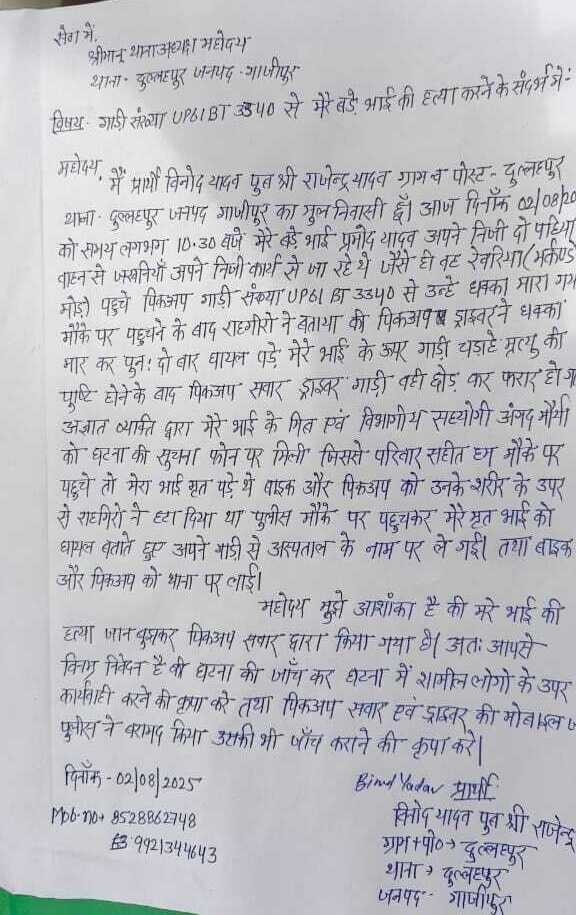 सेवा में,
श्रीमान् थानाअध्यक्ष महोदय
थाना- दुल्लहपुर जनपद- गाजीपुर
विषय- गाडी संख्या UP61BT 3340 से मेरे बडे भाई की हत्या करने के संदर्भ में:-
महोदय,
मैं प्रार्थी विनोद यादव पुत्र श्री राजेन्द्र यादव ग्राम व पोस्ट- दुल्लहपुर
थाना- दुल्लहपुर जनपद गाजीपुर का मुल निवासी हूँ। आज दिनाँक 02/08/20
को समय लगभग 10.30 बजे मेरे बडे भाई प्रमोद यादव अपने निजी दो पहिया
वाहन से जखनियाँ अपने निजी कार्य से जा रहे थे जैसे ही वह रेवरिया
मोड़) पहुचे पिकअप गाडी संख्या UP61 BT 3340 से उन्हे धक्का मारा गया
मौके पर पहुचने के बाद राहगीरो ने बताया की पिकअप ड्राइवर ने धक्का
मार कर पुनः दो बार घायल पडे मेरे भाई के ऊपर गाडी चडाई मृत्यु की
पुष्टि होने के बाद पिकअप सवार ड्राइवर गाडी वही छोड़ कर फरार हो
अज्ञात व्यक्ति द्वारा मेरे भाई के मित्र एवं विभागीय सहयोगी अंगद मौर्या
को घटना की सुचना फोन पर मिली जिससे परिवार सहीत हम मौके पर
पहुचे तो मेरा भाई मृत पडे थे बाइक और पिकअप को उनके शरीर के उपर
से राहगिरो ने हटा दिया था पुलीस मौके पर पहुचकर मेरे मृत भाई को
घायल बताते हुए अपने गाडी से अस्पताल के नाम पर ले गई। तथा बाइक
और पिकअप को थाना पर लाई।
महोदय मुझे आशंका है की मेरे भाई की
हत्या जान बुझकर पिकअप सवार द्वारा किया गया है। अतः आपसे
विनम्र निवेदन है की घटना की जाँच कर घटना में शामील लोगो के उपर
कार्यवाही करने की कृपा करे तथा पिकअप सवार एवं ड्राइवर की मोबाइल
पुलीस ने बरामद किया उसकी भी जाँच कराने की कृपा करे।
दिनाँक - 02/08/2025
Binod Yadav प्रार्थी
विनोद यादव पुत्र श्री राजेन्द्र
Mob-no→ 8528862748
ग्राम+पो०→ दुल्लहपुर
9921344643
थाना → दुल्लहपुर
जनपद- गाजीपुर